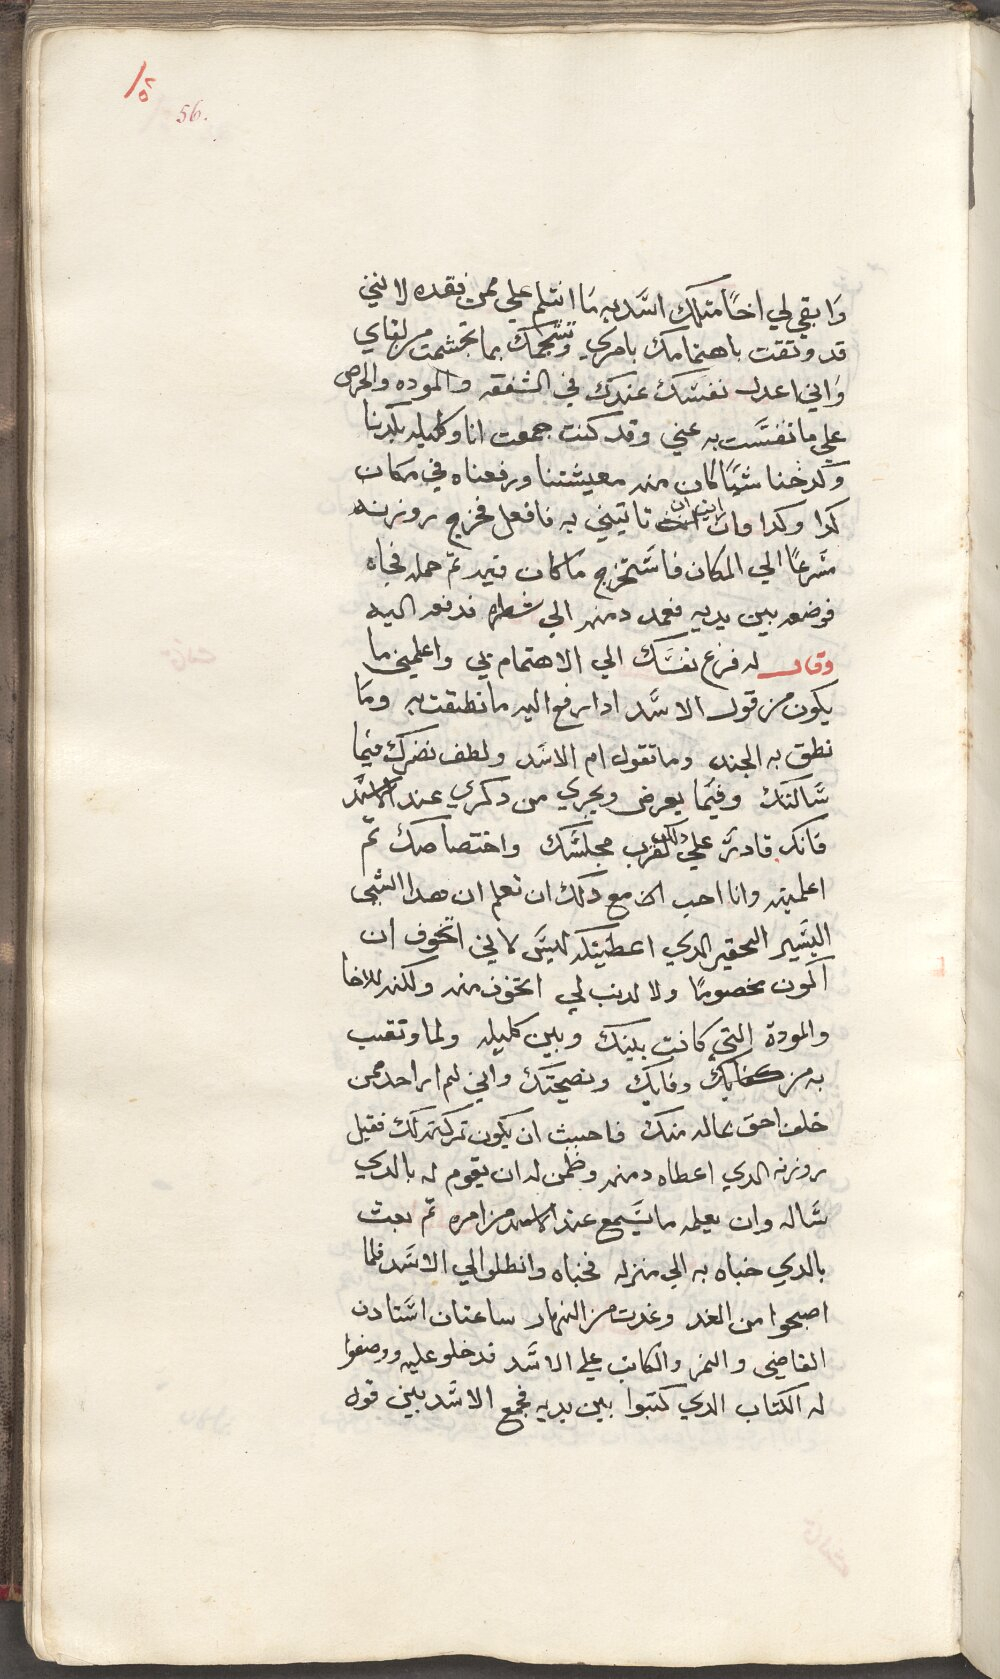 56.
وابقي لي اخًا متلك اسَّد به مَا انتلم علي ممن نفقده لانني
قد وتقت باهتمامك بامري وتتجمك بما تجشمت من لقاي
وَاني اعدل نفسَك عندك في الشفقه والموده والحرص
علي ما نفسَّت به عني وقد كنت جمعت انا وكليله بكدنا
وكدخنا شيَا كان من معيشتنا ورفعناه في مكان
كدا وكدا وان رايت ان تاتيني به فافعل فخرج روزنه
مسَرعًا الي المكان فاسَتخرج ما كان فيه تم حمله فجاه
فوضعه بين يديه فعمد دمنه الي شطره فدفعه اليه
وقال له فرغ نفسَك الي الاهتمام بي واعلمني ما
يكون من قول الاسَد ادا رفع اليه ما نطقت به ومَا
نطق به الجند وما تقول ام الاسَد ولطف نضرك فيَما
سَالتك وفيَما يعرض ويجري من دكري عند الاسَد
فانك قادر علي دلك لقرب مجلسَك واختصاصك تم
اعلمنيه وانا احب مع دلك ان تعلم ان هدا الشي
اليسَير الحقير الدي اعطيتكه ليسَ لاني اتخوف ان
اكون مخصومًا ولا لدنب لي اتخوف منه ولكنه للاخا
والمودة التي كانت بينك وبين كليله ولما وتقت
به من وفايك ونصيحتك واني لم ار احد ممن
خلف احق بماله منك فاحببت ان يكون تركته لك فقبل
روزنه الدي اعطاه دمنه وظمن له ان يقوم له بالدي
سَاله وان يعلمه ما يسَمع عند الاسد من امره تم بعت
بالدي حباه به الي منزله فخباه وانطلق الي الاسَد فلما
اصبحوا من الغد وغدت من النهار ساعتان استَادن
القاضي والنمر والكاتب علي الاسَد فدخلو عليه ووضعوا
له الكتاب الدي كتبوا بين يديه فجمع الاسَد بين قوله